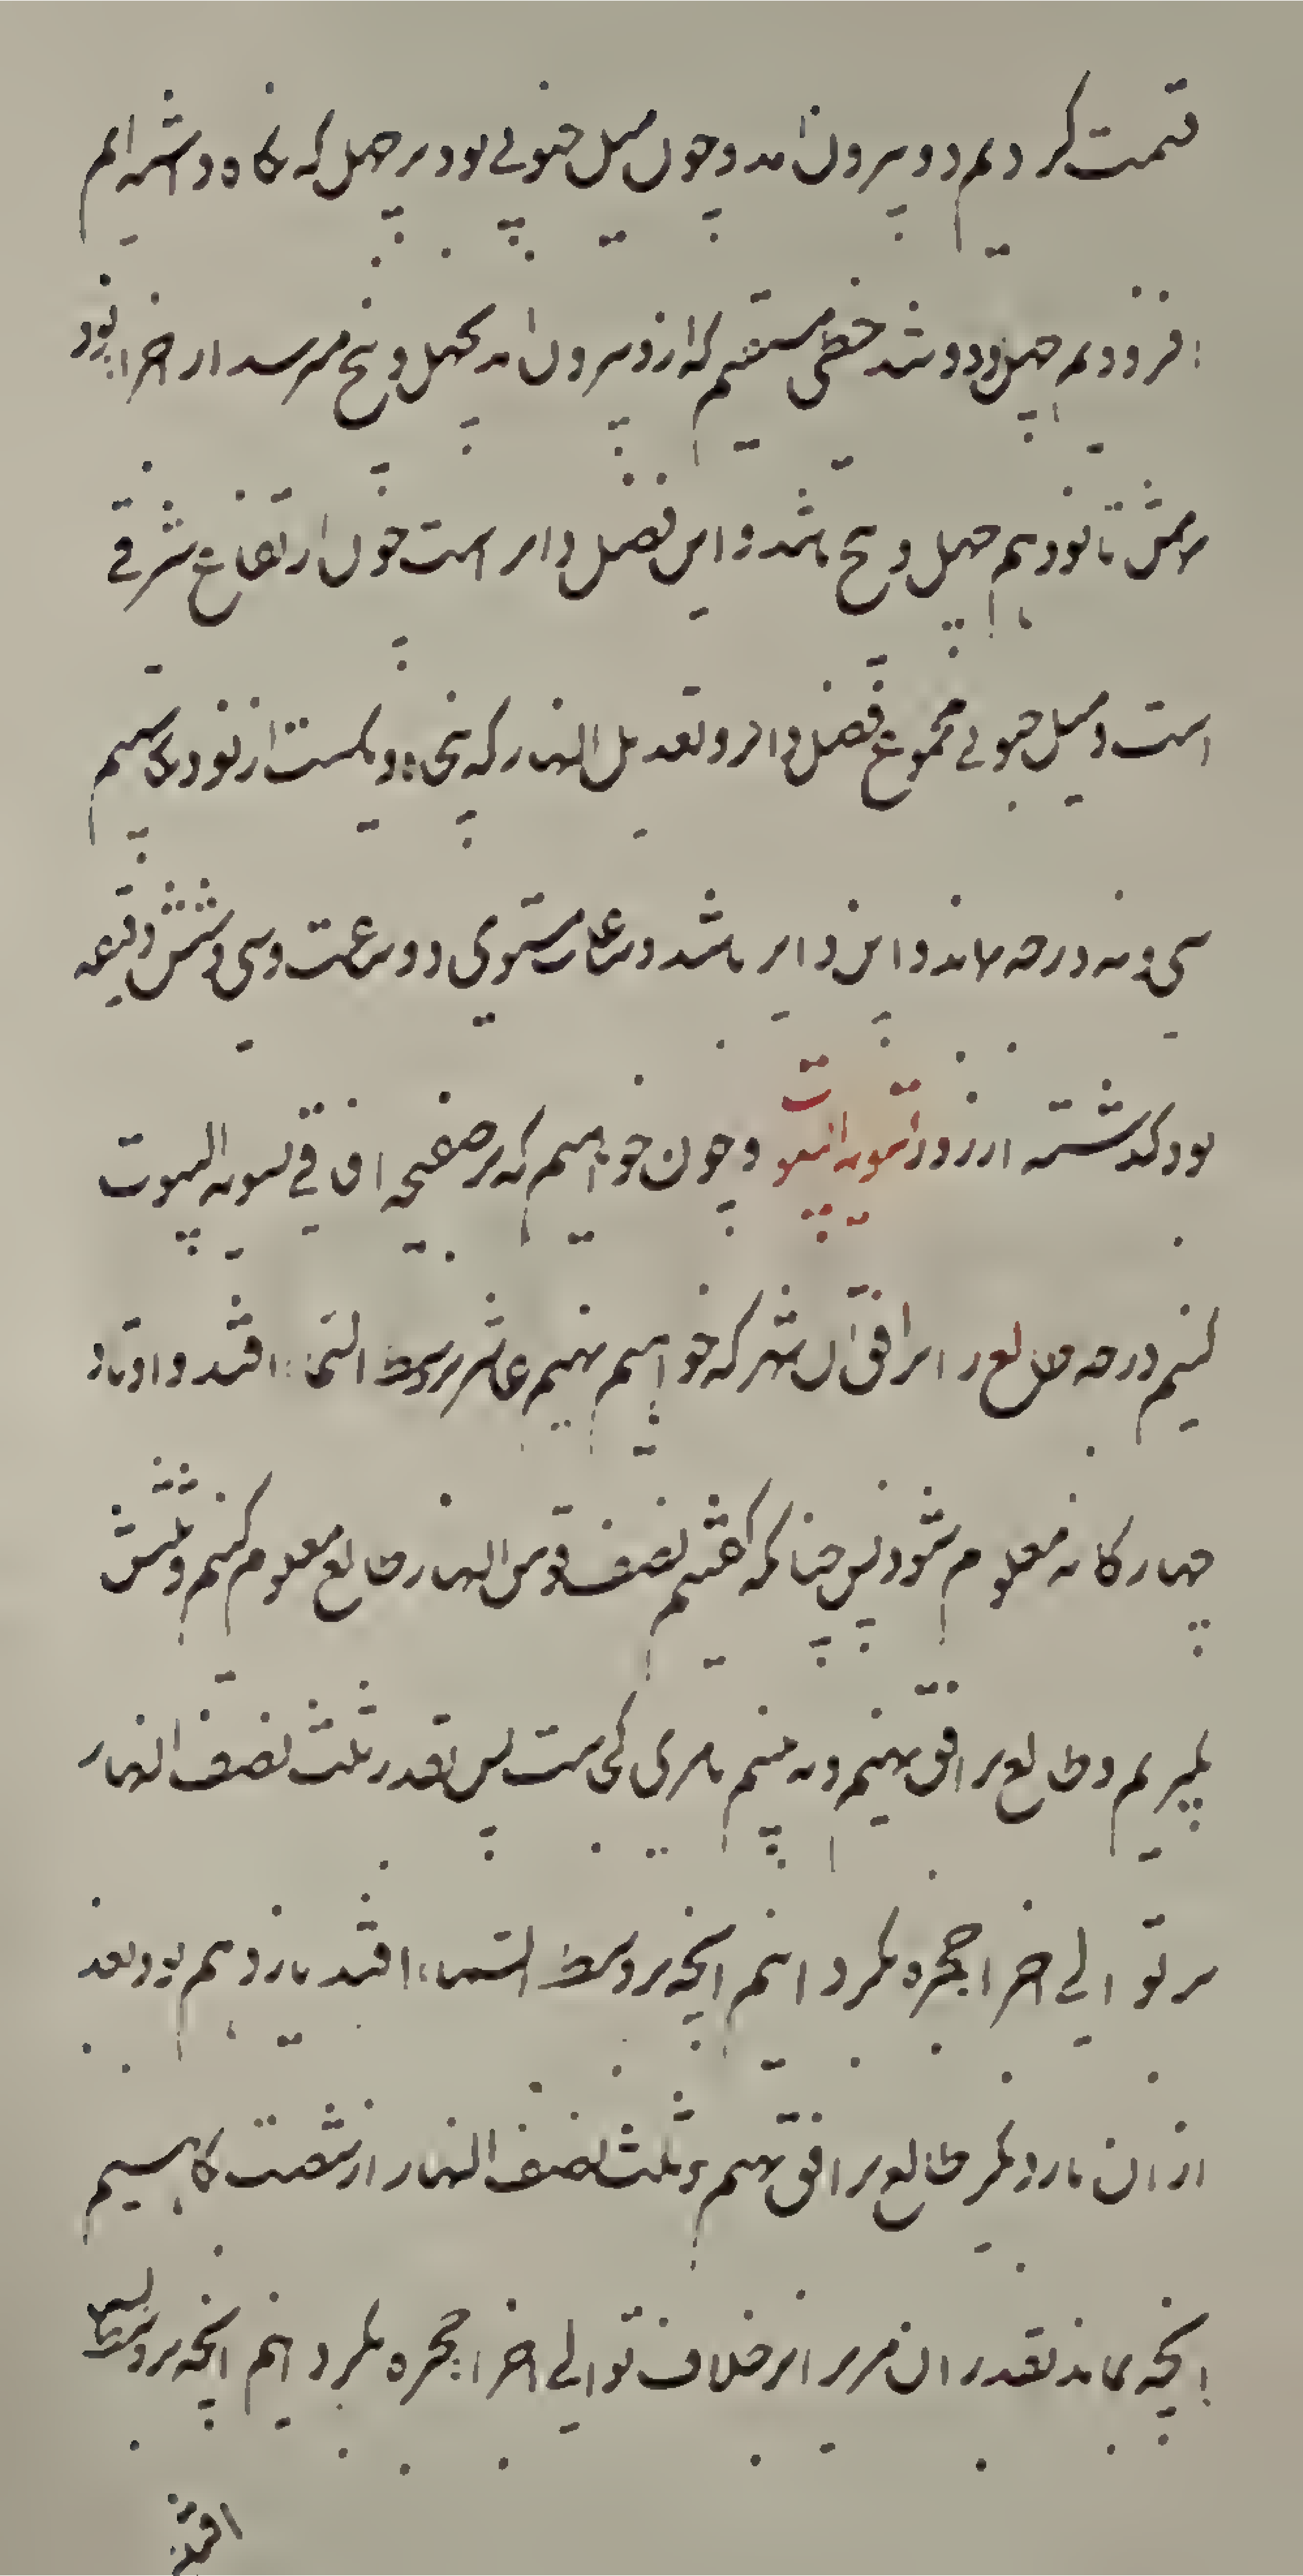 قسمت کردیم دو بیرون آمد و چون میل جنوبی بود بر چهل که نگاه داشته ایم
افزودیم چهل و دو شد خطی مستقیم که از دو بیرون آمد بچهل و پنج میرسد از اجزا بود
شمس تا نودیم چهل و پنج باشد و این فضل دایر است چون ارتفاع شرقی
است و میل جنوبی مجموع فضل دایر و تعدیل النهار که پنجاه و یکست از نود بکاهیم
سی و نه درجه بماند و این دایر باشد و ساعات مستوی دو ساعت و سی و شش دقیقه
بود گذشته از روز تسویه البیوت و چون خواهیم که بر صفیحه افاقی تسویه البیوت
کنیم درجه طالع را بر افق آن شهر که خواهیم نهیم عاشر بر وسط السما افتد و اوتاد
چهارگانه معلوم شود پس چنانکه گفتیم نصف قوس النهار طالع معلوم کنیم و ثلثش
بگیریم و طالع بر افق نهیم و به بینیم تا مری کجاست پس بقدر ثلث نصف النهار
بر توالی اجزا حجره بگردانیم آنچه بر وسط السماء افتد یازدهم بود بعد
از ان بار دیگر طالع بر افق نهیم و ثلث نصف النهار از شصت بکاهیم
آنچه بماند بقدر ان مری را بر خلاف توالی اجزا حجره بگردانیم آنچه بر وسط السما
افتد